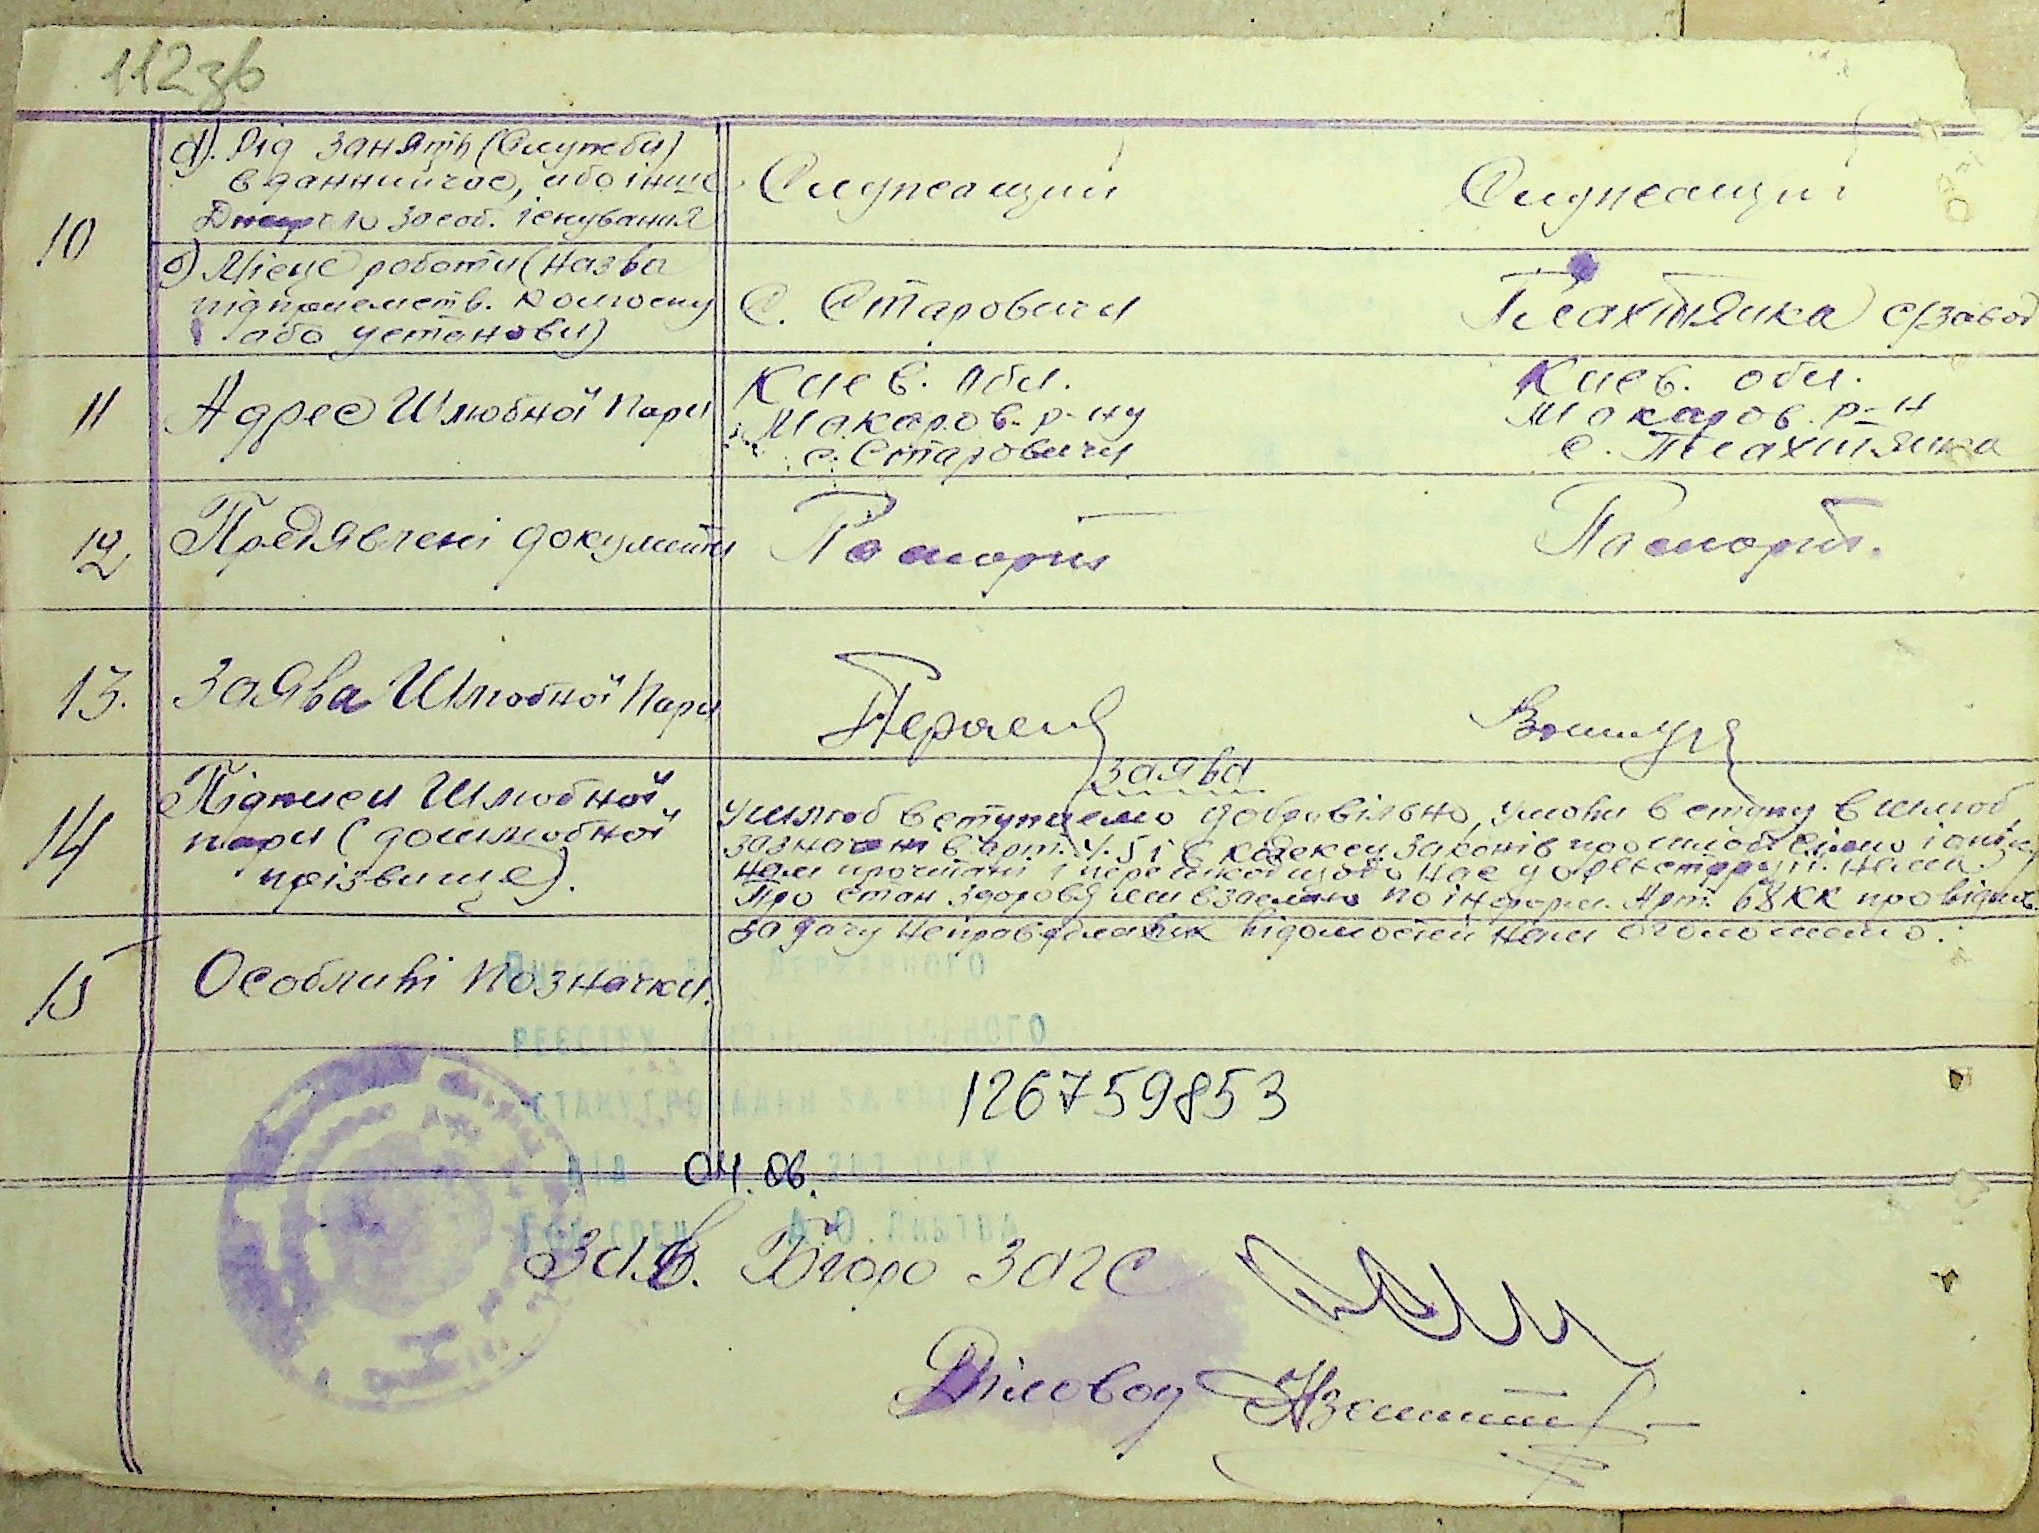 112зв
10
а). Рід занять (Служби)
в данний час, або інше
джерело засоб. існування
Служащий
Служащий
б) Місце роботи (назва
підприемств. колгоспу
або установи)
С. Старовичи
Плахтянка с/завод
11
Адрес Шлюбної Пари
Киев. обл.
Макаров. р-ну
с. Старовичи
Киев. обл.
Макаров. р-н
с. Плахтянка
12
Предявлені документи
Паспорт
Паспорт.
13.
Заява Шлюбної Пари
заява
14
Підписи Шлюбної
пари (дошлюбной
прізвище).
У шлюб вступаемо добровільно, умови вступу в шлюб,
зазначені в арт. 4. 5 і 6 кодексу законів про шлюб сімю і опіку
нам прочитані і перешкод щодо нас у орекструіі. нема.
Про стан здоровя ми взаемно поінформ. Арт. 68 КК про відпов.
за дачу неправдивих відомостей нам оголошено.
15
Особливі Позначки.
ДЕРЖАВНОГО
126759853
04.06.
Зав. Бюро ЗАГС
Діловод